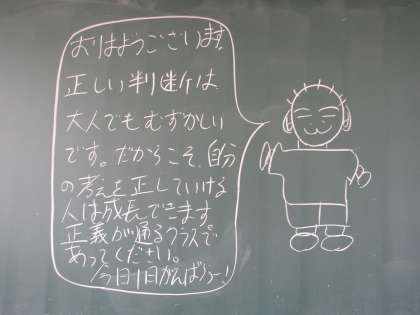 おはようございます。
正しい判断は
大人でもむずかしい
です。だからこそ、自分
の考えを正していける
人は成長できます
正義が通るクラスで
あってください。
今日1日がんばろー!